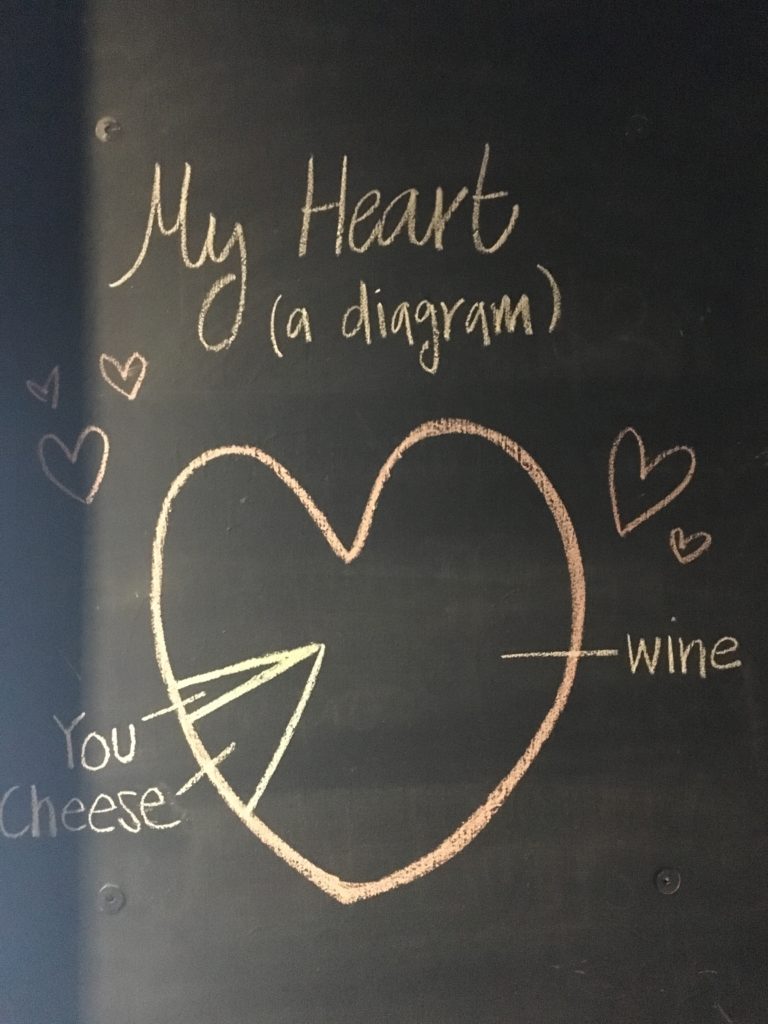 My Heart
(a diagram)
wine
You
Cheese